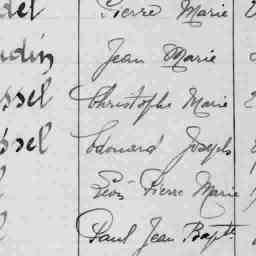 del Pierre Marie
udin Jean Marie
ssel Christophe Marie
ssel Edouard Joseph
Léon Pierre Marie
Paul Jean Bapte